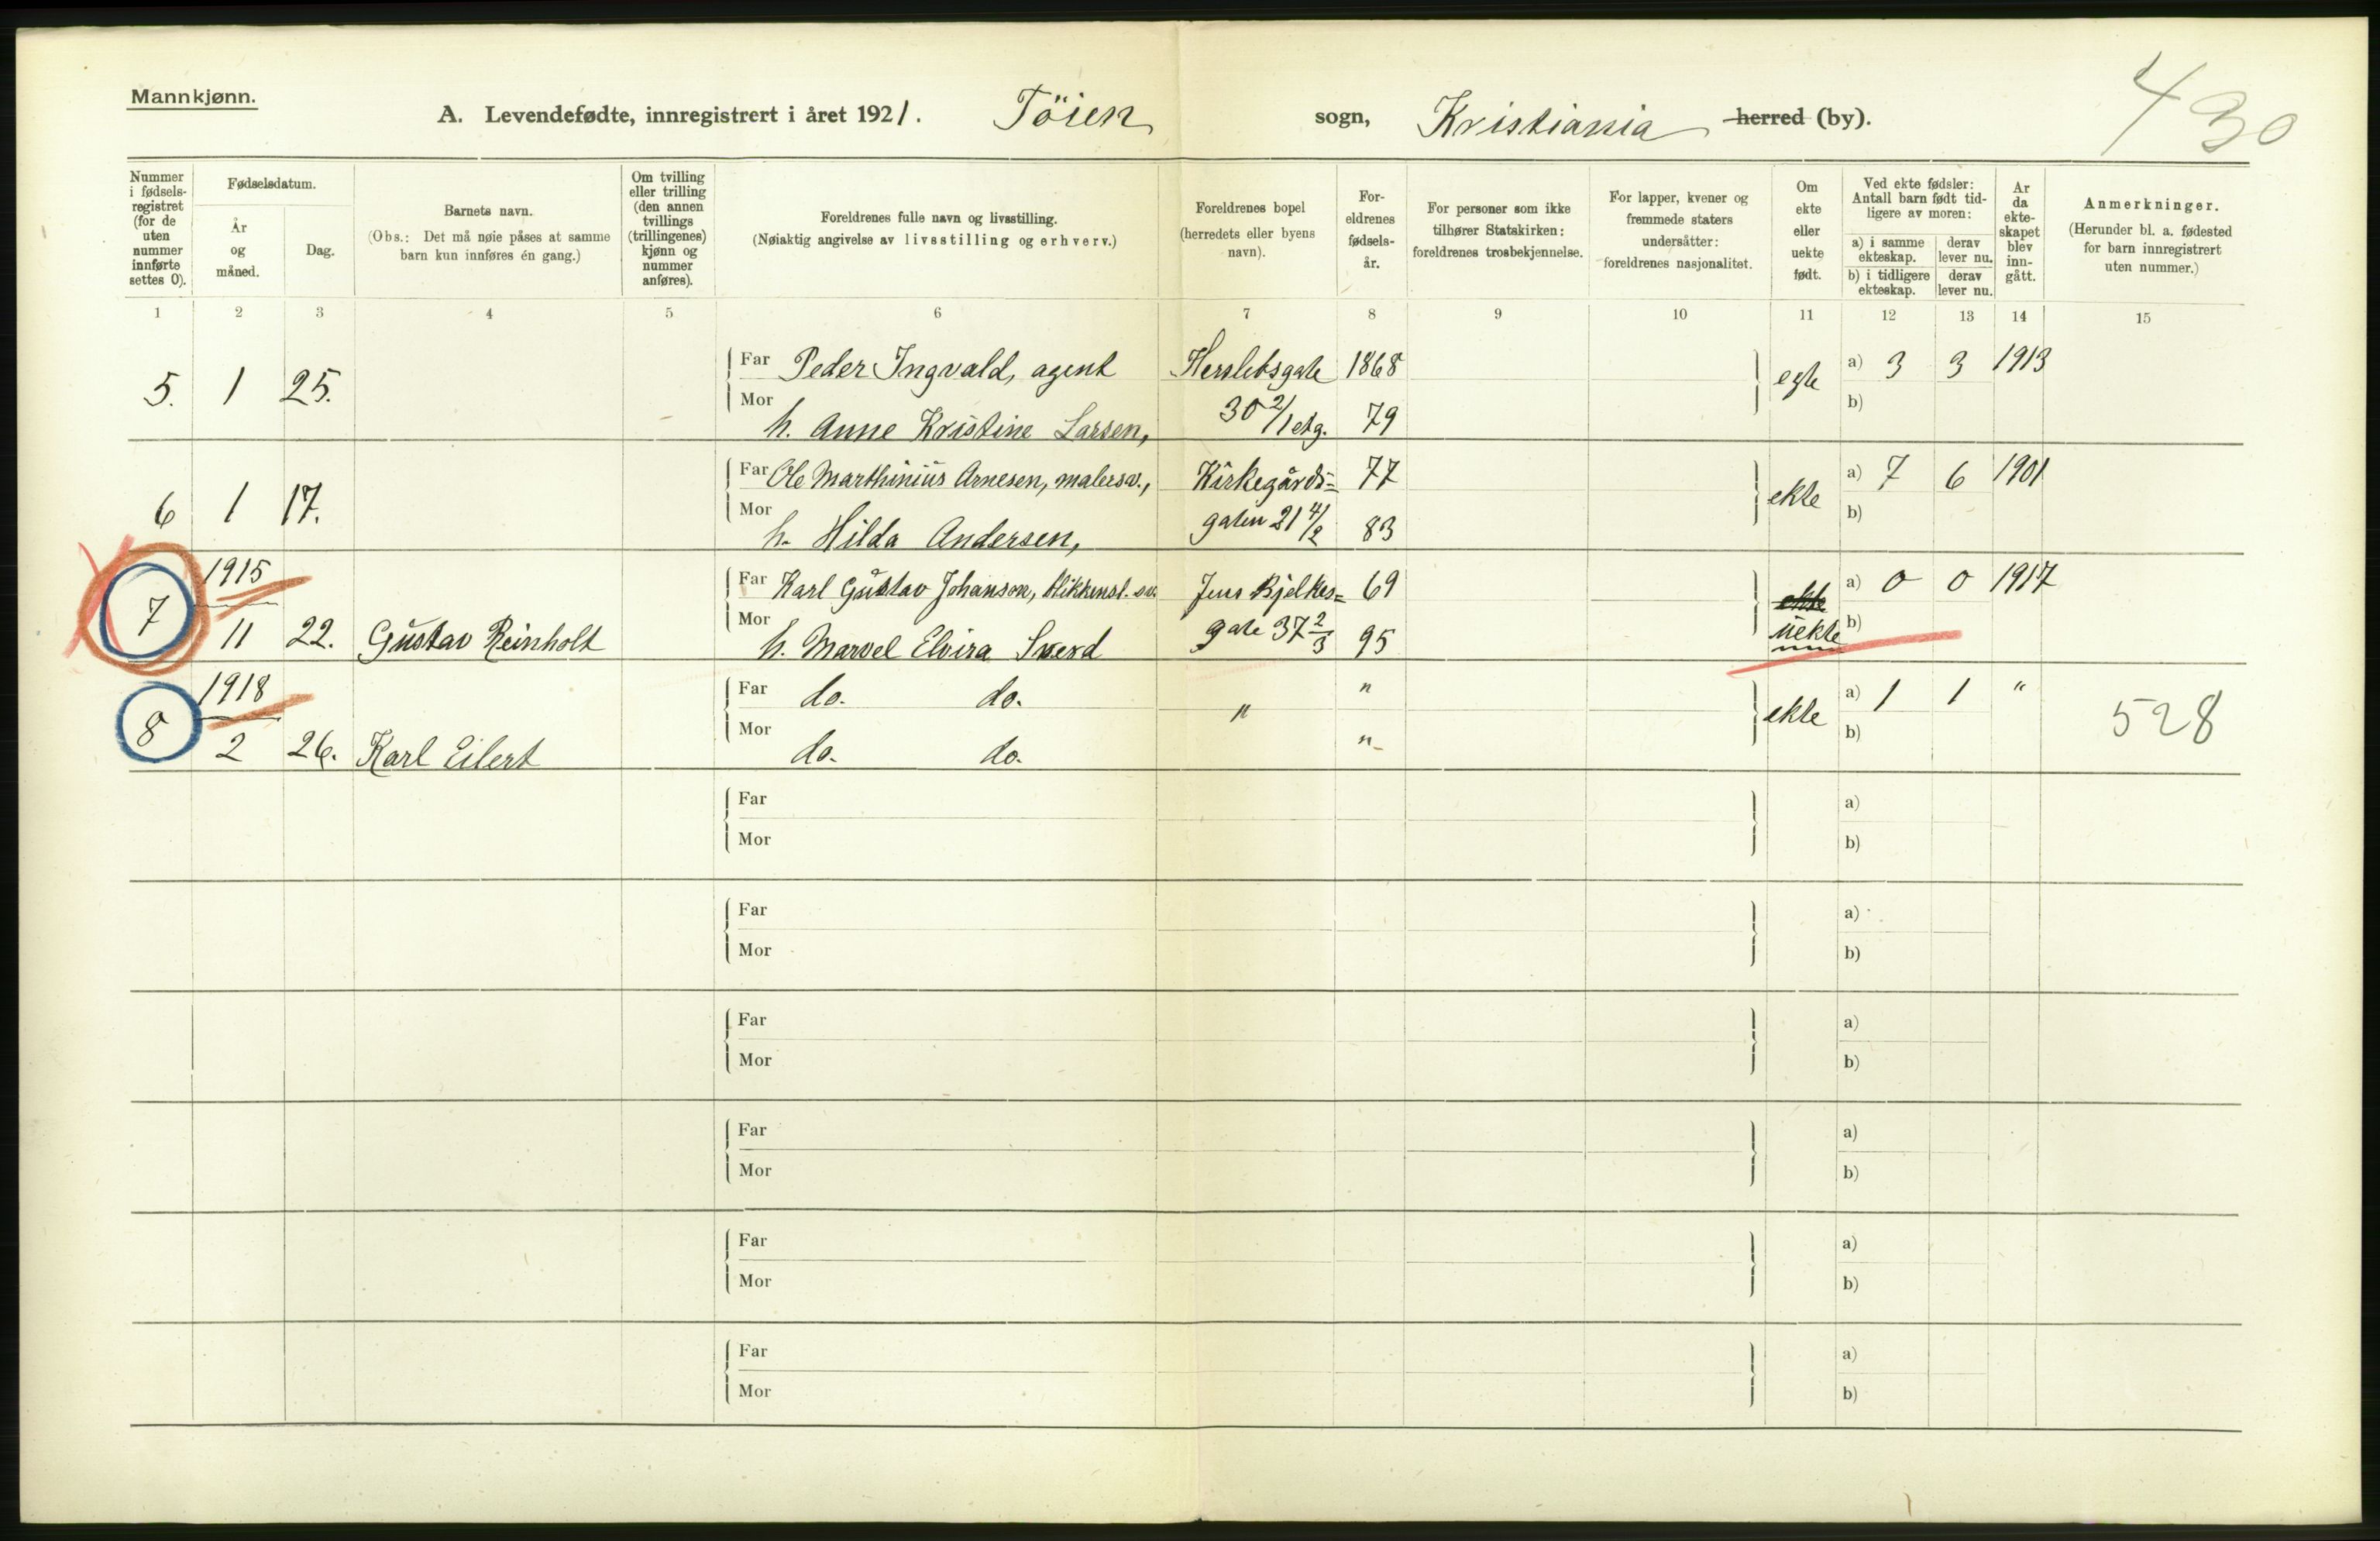 Mannkjønn.
A. Levendefødte, innregistrert i året 1921. Töien sogn, Kristiania herred (by).
430
Nummer i fødsels-registret (for de uten nummer innførte settes 0).
Fødselsdatum.
År og måned.
Dag.
Barnets navn.
(Obs.: Det må nøie påses at samme barn kun innføres én gang.)
Om tvilling eller trilling (den annen tvillings (trillingenes) kjønn og nummer anføres).
Foreldrenes fulle navn og livsstilling.
(Nøiaktig angivelse av livsstilling og erhverv.)
Foreldrenes bopel (herredets eller byens navn).
For-eldrenes fødsels-år.
For personer som ikke tilhører Statskirken: foreldrenes trosbekjennelse.
For lapper, kvener og fremmede staters undersåtter: foreldrenes nasjonalitet.
Om ekte eller uekte født.
Ved ekte fødsler: Antall barn født tid-ligere av moren:
a) i samme ekteskap.
derav lever nu.
b) i tidligere ekteskap.
derav lever nu.
År da ekte-skapet blev inn-gått.
Anmerkninger.
(Herunder bl. a. fødested for barn innregistrert uten nummer.)
1 2 3 4 5 6 7 8 9 10 11 12 13 14 15
Far Peder Ingvald, agent Herslebsgate 1868 a) 3 3 1913
5. 1 25. egte
Mor h. Anne Kristine Larsen, 30 2/1 etg. 79 b)
Far Ole Marthinius Arnesen, malersv., Kirkegårds= 77 a) 7 6 1901
6 1 17. ekte
Mor h. Hilda Andersen, gaten 21 4/2 83 b)
1915 Far Karl Gustav Johanson, blikkensl. sv. Jens Bjelkes= 69 ekte a) 0 0 1917
7 11 22. Gustav Reinholt Mor h. Marvel Elvira Sverd gate 37 2/3 95 uekte b)
1918 Far do. do. " " a) 1 1 "
8 2 26. Karl Eilert Mor do. do. " ekte b) 528
Far a)
Mor b)
Far a)
Mor b)
Far a)
Mor b)
Far a)
Mor b)
Far a)
Mor b)
Far a)
Mor b)